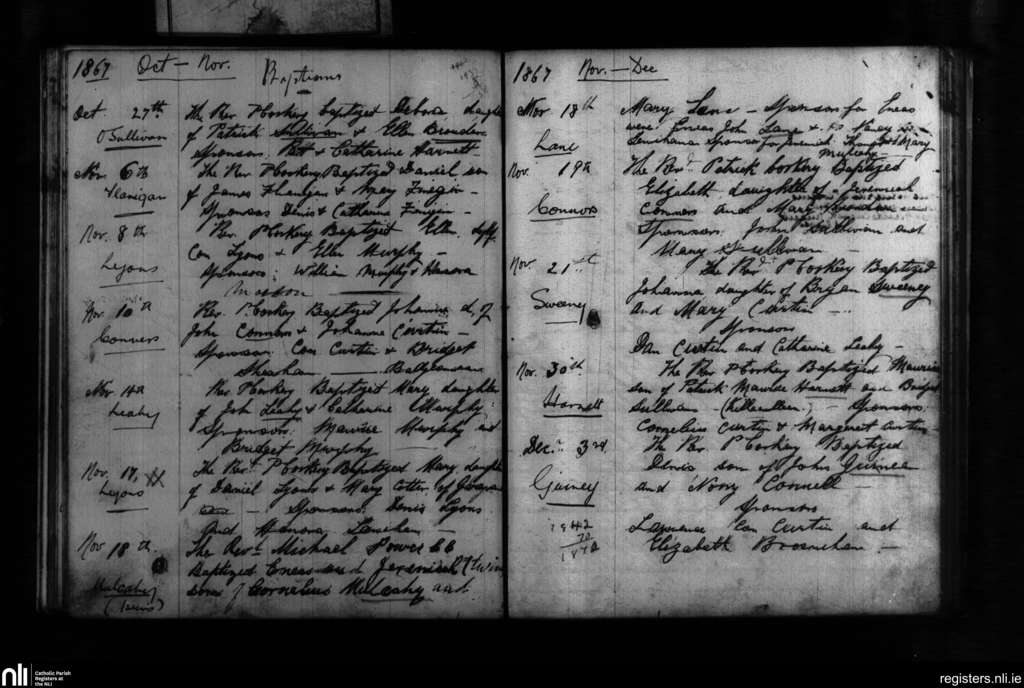 1867 Oct - Nov.
Baptisms
Oct. 27th The Rev P Corkery baptized Debora daughter
O'Sullivan of Patrick Sullivan & Ellen
Sponsors. Pat & Catharine Harnett -
Nov. 6th The Rev P Corkery Baptized Daniel son
Flanigan of James Flanigan & Mary
Sponsors Denis & Catharine
Nov. 8th Rev. P Corkery Baptized Ellen
Lyons Con Lyons & Ellen Murphy -
Sponsors: William Murphy & Hanora
Nov. 10th Rev. P. Corkery Baptized Johanna d. of
Connors John Connors & Johanna Curtin -
Sponsors Con Curtin & Bridget
Sheahan
Nov 14th Rev P Corkery Baptized Mary daughter
Leahy of John Leahy & Catherine Murphy
Sponsors. Maurice Murphy and
Bridget Murphy
Nov. 17, The Revd. P Corkery Baptized Mary daughter
Lyons of Daniel Lyons & Mary Cotter of
Sponsors. Denis Lyons
And Hanora Lenehan -
Nov 18th. The Revd. Michael Power CC
Baptized Eneas and Jeremiah (twin
Mulcahy sons of Cornelius Mulcahy and
(twins)
1867 Nov. - Dec
Nov 18th Mary Lane - Sponsors for Eneas
were: Eneas John Lane &
Lane Lenehan Sponsors for Jeremiah & Mary
Mulcahy
Nov. 19th The Revd. Patrick Corkery Baptized
Elizabeth daughter of Jeremiah
Connors Connors and Mary
Sponsors. John Sullivan and
Mary Sullivan -
Nov. 21st The Revd. P Corkery Baptized
Johanna daughter of Bryan Sweeney
Sweeney And Mary Curtin -
Sponsors
Dan Curtin and Catharine Leahy -
Nov. 30th The Rev P Corkery Baptized Maurice
son of Patrick Maurice Harnett and Bridget
Harnett Sullivan - Sponsors:
Cornelius Curtin & Margaret Curtin
Dec. 3rd The Rev. P Corkery Baptized
Denis son of John Guinee
Guiney and Nony Connell -
Sponsors
1842 Lawrence Con Curtin and
Elizabeth Brosnehan -
nli Catholic Parish
Registers at
the NLI
registers.nli.ie